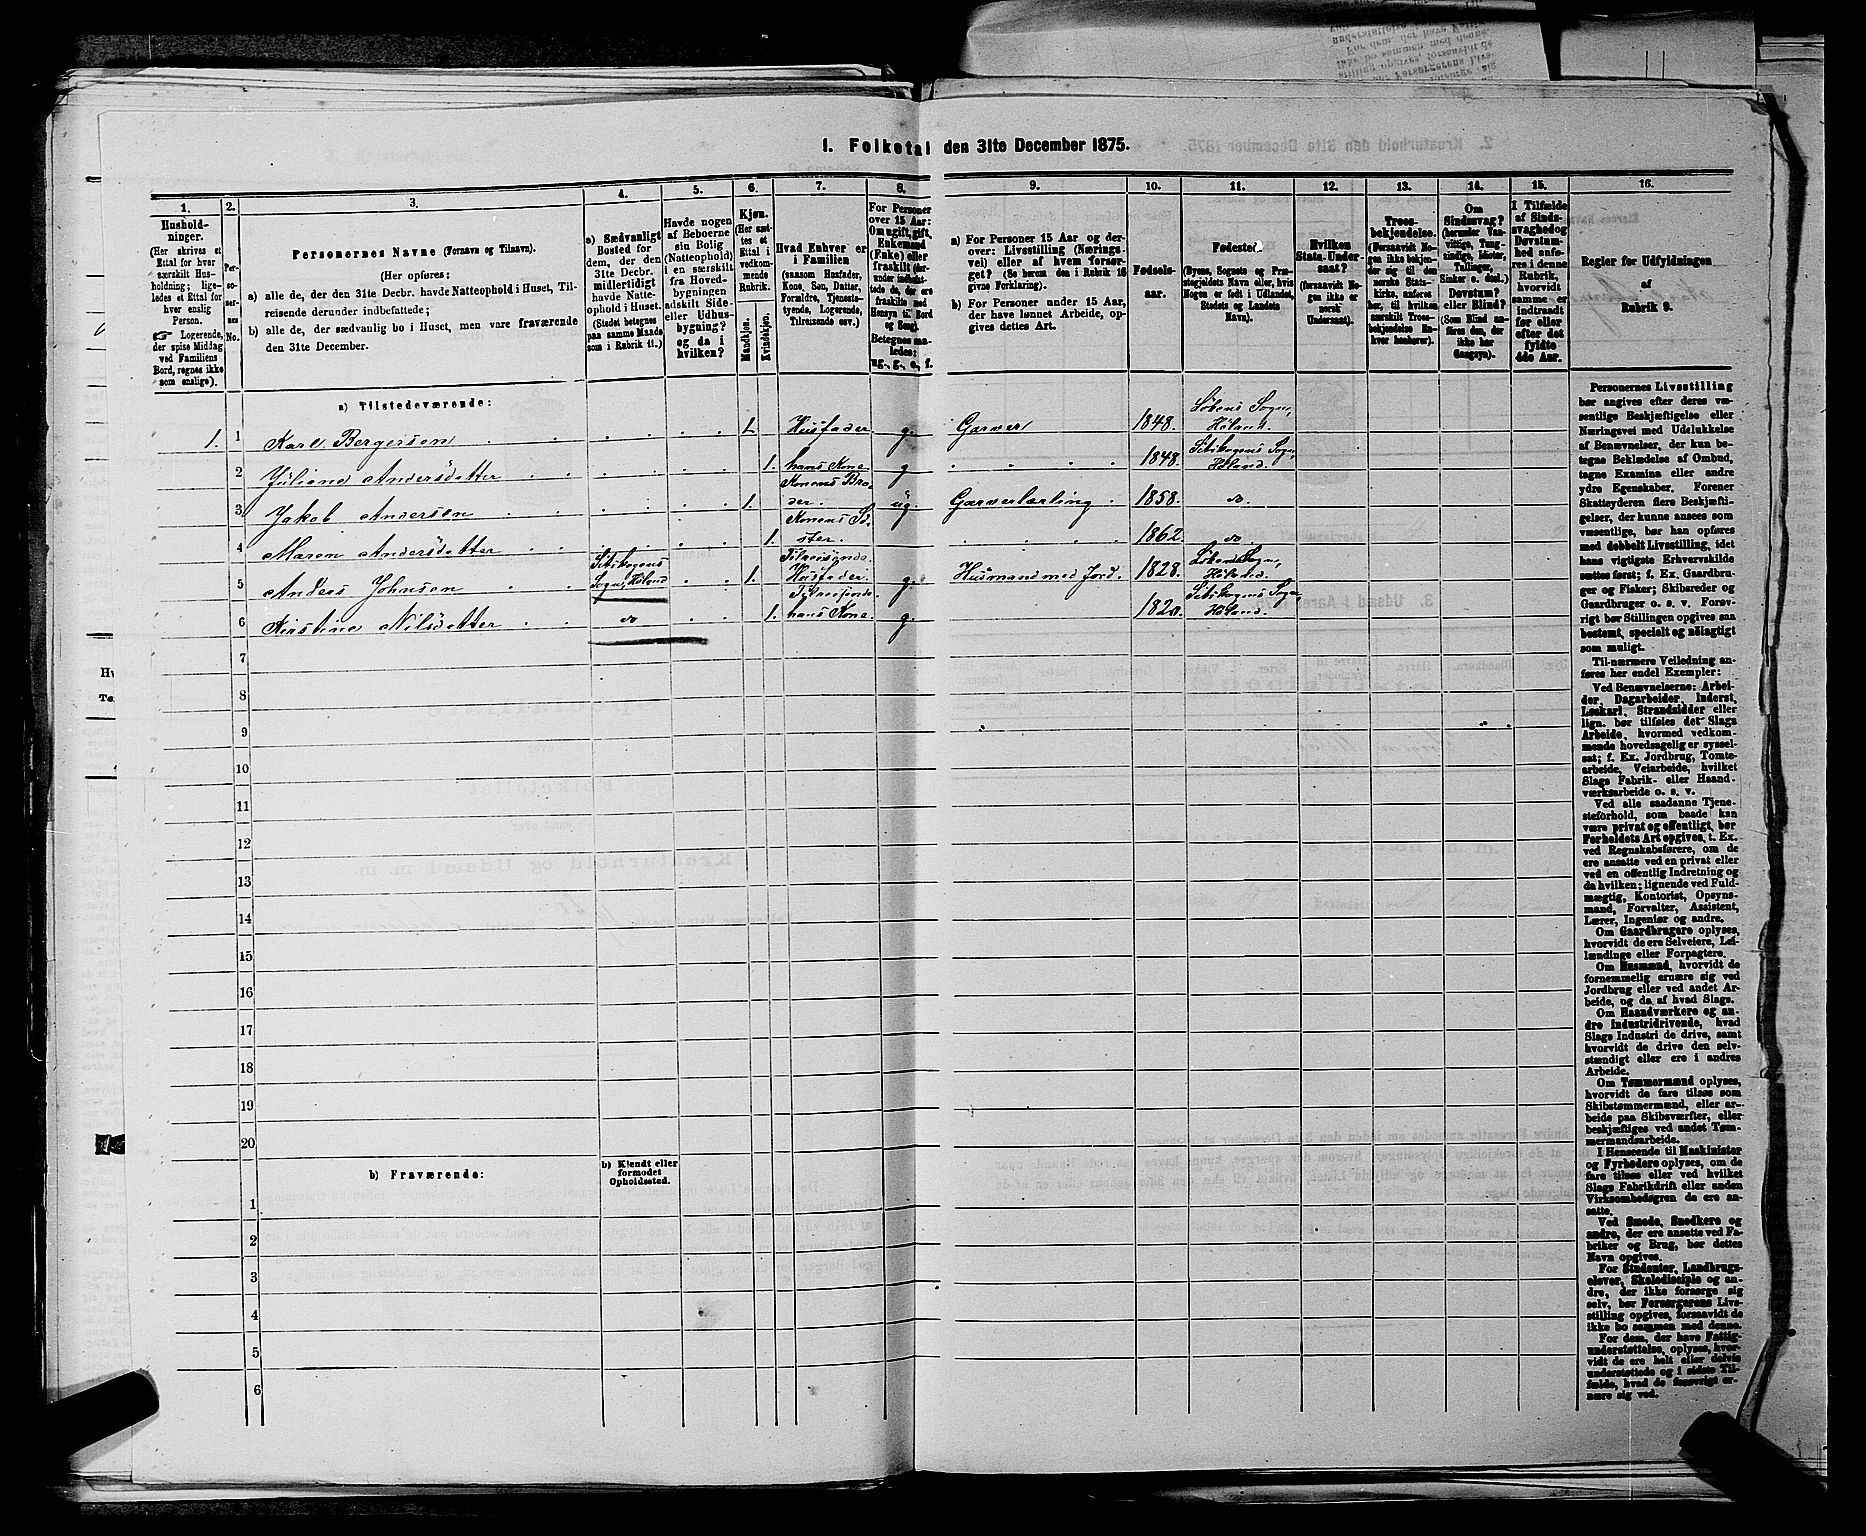 1. Folketal den 31te December 1875.
1. 2. 3. 4. 5. 6. 7. 8. 9. 10. 11. 12. 13. 14. 15. 16.
Hushold-
ninger.
(Her skrives et
Ettal for hver
særskilt Hus-
holdning; lige-
ledes et Ettal for
hver enslig
Person.
☞ Logerende,
der spise Middag
ved Familiens
Bord, regnes ikke
som enslige).
Per-
so-
ner-
nes
No.
Personernes Navne (Fornavn og Tilnavn).
(Her opføres;
a) alle de, der den 31te Decbr. havde Natteophold i Huset, Til-
reisende derunder indbefattede;
b) alle de, der sædvanlig bo i Huset, men vare fraværende
den 31te December.
a) Sædvanligt
Bosted for
dem, der den
31te Decbr.
midlertidigt
havde Natte-
ophold i Huset.
(Stedet betegnes
paa samme Maade
som i Rubrik 11.)
Havde nogen
af Beboerne
sin Bolig
(Natteophold)
i en særskilt
fra Hoved-
bygningen
adskilt Side-
eller Udhus-
bygning?
og da i
hvilken?
Kjøn.
(Her sæt-
tes et
Ettal i
vedkom-
mende
Rubrik.
Mandkjøn.
Kvindekjøn.
Hvad Enhver er
i Familien
(saasom Husfader,
Kone, Søn, Datter,
Forældre, Tjeneste-
tyende, Logerende,
Tilreisende osv.)
For Personer
over 15 Aar:
Om ugift, gift,
Enkemand
(Enke) eller
fraskilt
Betegnes saa-
ledes:
ug., g., e., f.
a) For Personer 15 Aar og der-
over: Livsstilling (Nærings-
vei) eller af hvem forsør-
get? (Se herom den i Rubrik 16
givne Forklaring).
b) For Personer under 15 Aar,
der have lønnet Arbeide, op-
gives dettes Art.
Fødsels-
aar.
Fødested.
(Byens, Sognets og Præ-
stegjeldets Navn eller, hvis
Nogen er født i Udlandet,
Stedets og Landets
Navn).
Hvilken
Stats Under-
saat?
(forsaavidt No-
gen ikke er
norsk
Undersaat).
Troes-
bekjendelse.
(Forsaavidt No-
gen ikke bekjen-
der sig til den
norske Stats-
kirke, anføres
her, til hvilken
særskilt Troes-
bekjendelse En-
hver henhører).
Om
Sindssvag?
(herunder Van-
vittige, Tung-
sindige, Idioter,
Tullinger,
Sinker o. desl.)
Døvstum?
eller Blind?
(Som Blind an-
føres den, der
ikke har
Gangsyn).
I Tilfælde
af Sinds-
svaghed og
Døvstum-
hed anfø-
res i denne
Rubrik,
hvorvidt
samme er
indtraadt
før eller
efter det
fyldte
4de Aar.
Regler for Udfyldningen
af
Rubrik 9.
a) Tilstedeværende:
1. 1 Karl Bergersen 1. Husfader g. Garver 1848. Løkens Sogn, Høland.
2 Juliane Andersdatter 1. hans Kone g 1848. Setskogens Sogn, Høland.
3 Jakob Andersen 1. Konens Bro- der. ug. Garverlærling. 1858. do
4 Maren Andersdatter 1. Konens Sø- ster. 1862. do
5 Anders Johnsen Setskogens Sogn, Høland 1. Tilreisende Husfader. g. Husmand med Jord. 1828. Løkens Sogn, Høland.
6 Kirstine Nilsdatter do 1. Tilreisende hans Kone g. 1820. Setskogens Sogn, Høland.
7
8
9
10
11
12
13
14
15
16
17
18
19
20
b) Fraværende:
b) Kjendt eller
formodet
Opholdssted.
1
2
3
4
5
6
Personernes Livsstilling
bør angives efter deres væ-
sentlige Beskjæftigelse eller
Næringsvei med Udelukkelse
af Benævnelser, der kun be-
tegne Beklædelse af Ombud,
tagne Examina eller andre
ydre Egenskaber. Forener
Skatteyderen flere Beskjæfti-
gelser, der kunne ansees som
væsentlige, bør han opføres
med dobbelt Livsstilling, idet
hans vigtigste Erhvervskilde
sættes først; f. Ex. Gaardbru-
ger og Fisker; Skibsreder og
Gaardbruger o. s. v. Forøv-
rigt bør Stillingen opgives saa
bestemt, specielt og nøiagtigt
som muligt.
Til nærmere Veiledning an-
føres her endel Exempler:
Ved Benævnelserne: Arbei-
der, Dagarbeider, Inderst,
Løskarl, Strandsidder eller
lign. bør tilføies det Slags
Arbeide, hvormed vedkom-
mende hovedsagelig er syssel-
sat; f. Ex. Jordbrug, Tomte-
arbeide, Veiarbeide, hvilket
Slags Fabrik- eller Haand-
værksarbeide o. s. v.
Ved alle saadanne Tjene-
steforhold, som baade kan
være privat og offentligt, bør
Forholdets Art opgives, t. Ex.
ved Regnskabsførere, om de
ere ansatte ved en privat eller
ved en offentlig Indretning og
da hvilken; lignende ved Fuld-
mægtig, Kontorist, Opsyns-
mand, Forvalter, Assistent,
Lærer, Ingeniør og andre.
Om Gaardbrugere oplyses,
hvorvidt de ere Selveiere, Lei-
lændinge eller Forpagtere.
Om Husmænd, hvorvidt de
fornemmelig ernære sig ved
Jordbrug eller ved andet Ar-
beide, og da af hvad Slags.
Om Haandværkere og an-
dre Industridrivende, hvad
Slags Industri de drive, samt
hvorvidt de drive den selv-
stændigt eller ere i andres
Arbeide.
Om Tømmermænd oplyses,
hvorvidt de fare tilsøs som
Skibstømmermænd, eller ar-
beide paa Skibsværfter, eller
beskjæftiges ved andet Tøm-
mermandsarbeide.
I Henseende til Maskinister
og Fyrbødere oplyses, om de
fare tilsøs eller ved hvilket
Slags Fabrikdrift eller anden
Virksomhedsgren de ere an-
satte.
Ved Smede, Snedkere og
andre, der ere ansatte ved Fa-
briker og Brug, bør dettes
Navn opgives.
For Studenter, Landbrugs-
elever, Skoledisciple og an-
dre, der ikke forsørge sig
selv, bør Forsørgerens Livs-
stilling opgives, forsaavidt de
ikke bo sammen med denne.
For dem, der have Fattig-
understøttelse, oplyses, hvor-
vidt de ere helt eller delvis
understøttede og i sidste Til-
fælde, hvad de forøvrigt er-
nære sig ved.